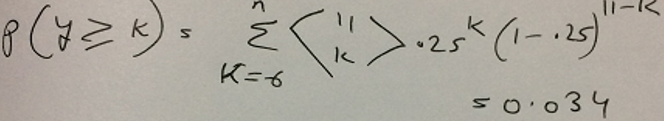 P(y ≥ k) = n Σ K=6 < 11 k > .25^k (1-.25)^11-k
= 0.034